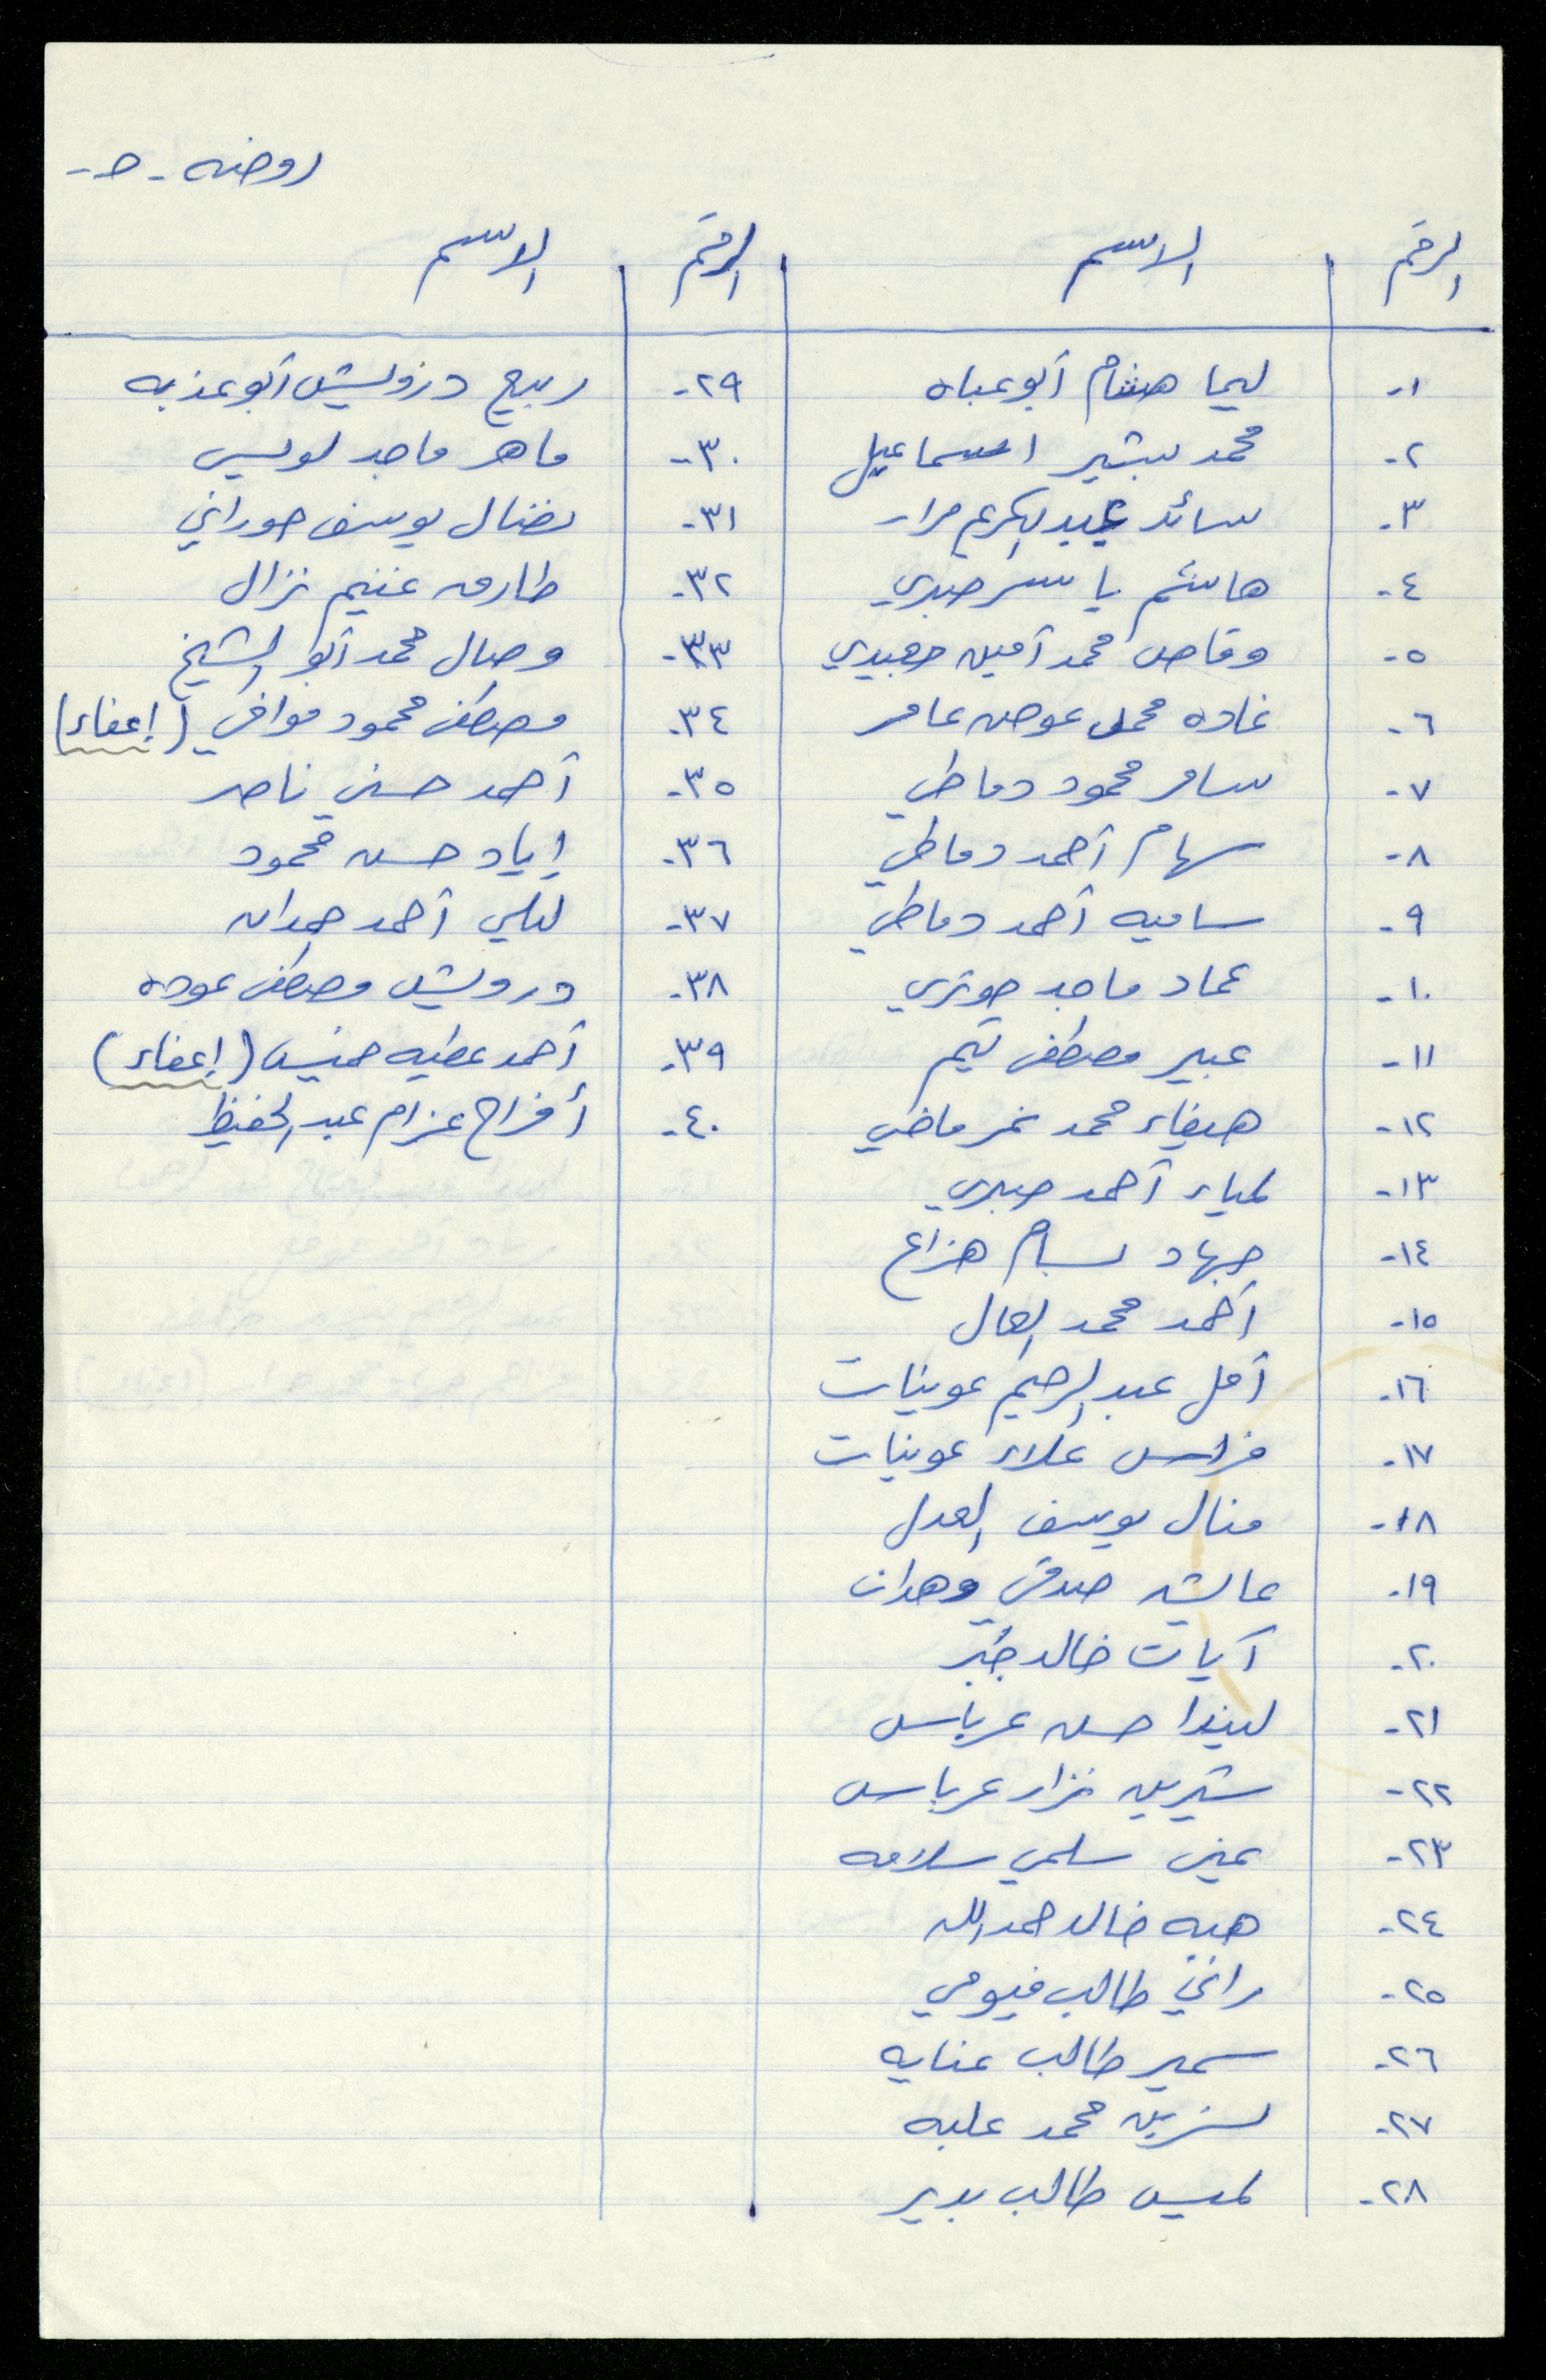 روضه - د -
الرقم الاسم الرقم الاسم
١- ليما هشام أبو عباه
٢- محمد بشير اسماعيل
٣- سائد عبد الكريم مرار
٤- هاشم ياسر صبري
٥- وقاص محمد أمين جعيدي
٦- غاده محمد عوض عامر
٧- سامر محمود دماطي
٨- سهام أحمد دماطي
٩- ساميه أحمد دماطي
١٠- عماد ماجد جوتري
١١- عبير مصطفى تيم
١٢- هيفاء محمد نمر ماضي
١٣- لمياء أحمد صبري
١٤- جهاد بسام هزاع
١٥- أحمد محمد العال
١٦- أمل عبد الرحيم عوينات
١٧- فراس علاء عوينات
١٨- منال يوسف العدل
١٩- عائشه صدقي وهدان
٢٠- آيات خالد جبر
٢١- ليندا حسن عرباس
٢٢- شيرين نزار عرباس
٢٣- سلمي سلامه
٢٤- هبه خالد حمد الله
٢٥- راني طالب فيومي
٢٦- سمير طالب عنايه
٢٧- نسرين محمد علبه
٢٨- لميس طالب بدير
٢٩- ربيع درويش أبو عذبه
٣٠- ماهر ماجد
٣١- نضال يوسف حوراني
٣٢- طارق غنيم نزال
٣٣- وصال محمد أبو الشيخ
٣٤- مصطفى محمود موافي (إعفاء)
٣٥- أحمد حسني ناصر
٣٦- إياد حسن محمود
٣٧- ليلي أحمد حمدان
٣٨- درويش مصطفى عوده
٣٩- أحمد عطيه حنيس (إعفاء)
٤٠- أفراح عزام عبد الحفيظ